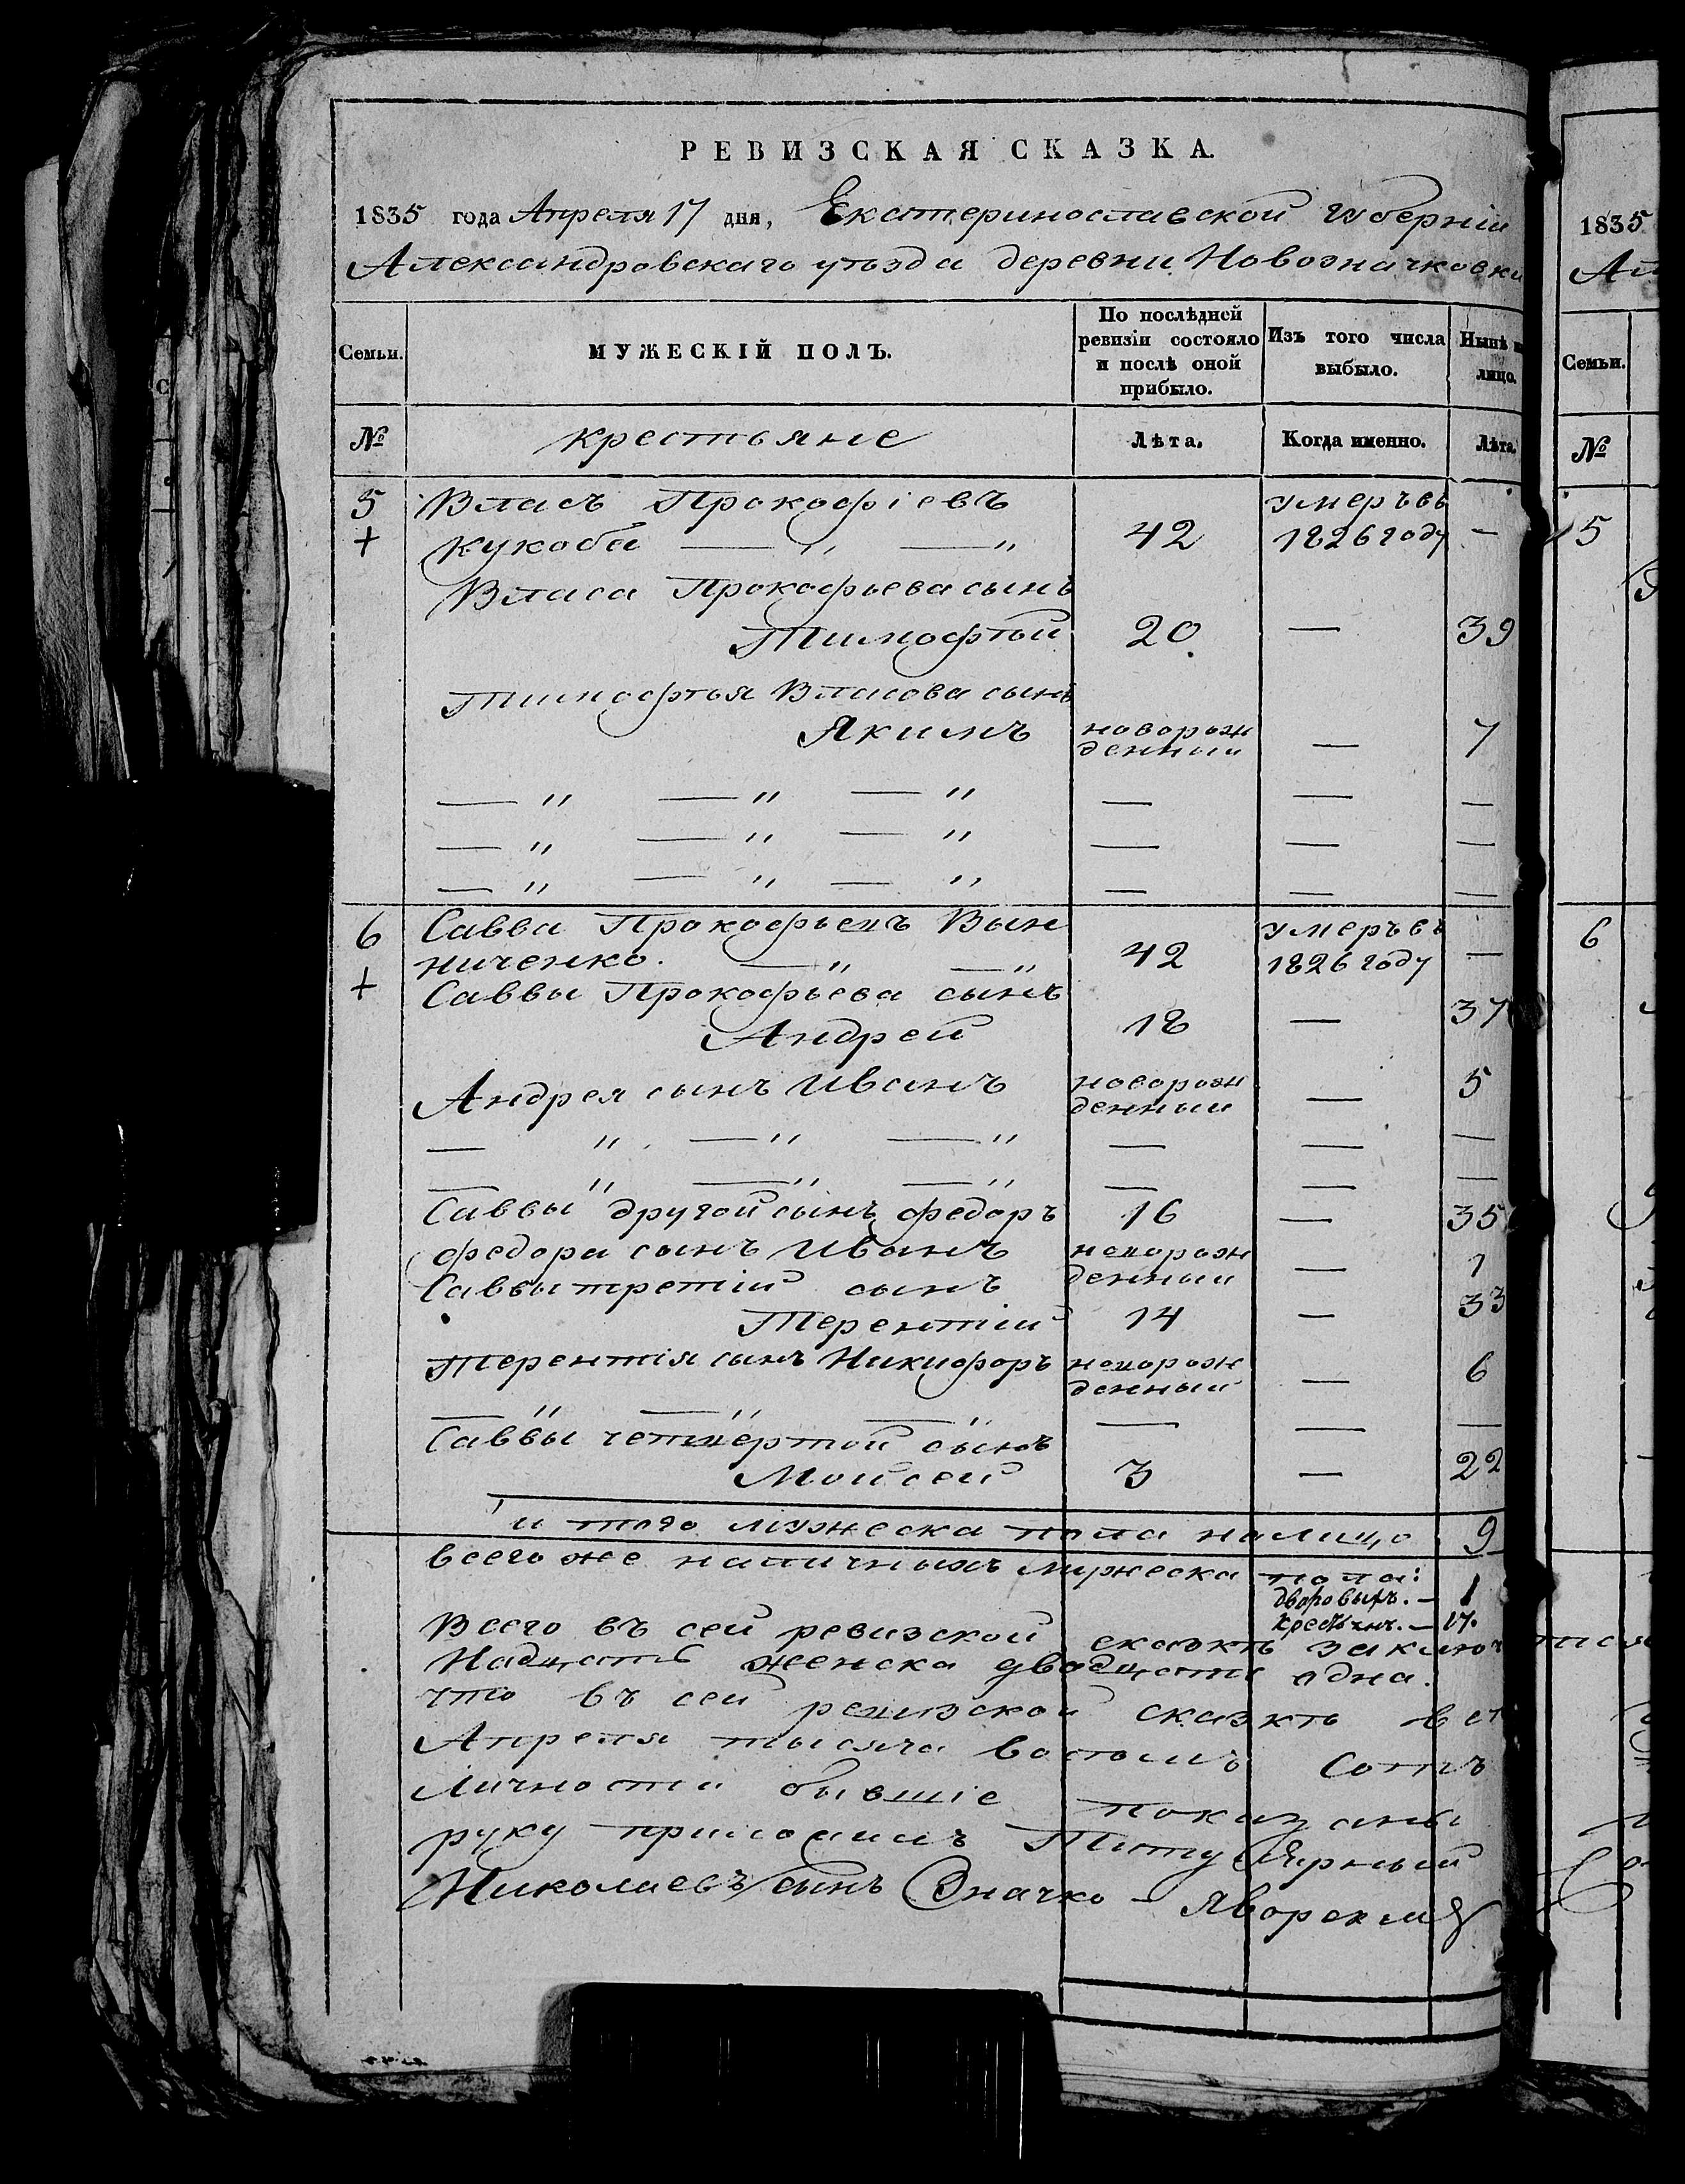 РЕВИЗСКАЯ СКАЗКА.
1835 года Апреля 17 дня, Екатеринославской губерніи
Александровскаго уѣзда деревни Новозначковки
Семьи.
МУЖЕСКІЙ ПОЛЪ.
По послѣдней ревизіи состояло и послѣ оной прибыло.
Изъ того числа выбыло.
Нынѣ
лицо.
№ крестьяне Лѣта. Когда именно. Лѣта.
5 Власъ Прокофіевъ умеръ въ
+ Кукоба — „ — „ 42 1826 году —
Власа Прокофьева сынъ
Тимофѣй 20. — 39
Тимофѣя Власова сынъ
Якимъ новорож
денный — 7
— „ — „ — „ — — —
— „ — „ — „ — — —
— „ — „ — „ — — —
6 Савва Прокофьевъ Вын умеръ въ
ниченко. — „ — „ 42 1826 году —
+ Саввы Прокофьева сынъ
Андрей 18 — 37
Андрея сынъ Иванъ новорож
денный — 5
— „ — „ — „ — — —
— „ — „ — „ — — —
Саввы другой сынъ Федоръ 16 — 35
Федора сынъ Иванъ новорож
денный — 1
Саввы третій сынъ
Терентій 14 — 33
Терентія сынъ Никифоръ новорож
денный — 6
— „ — „ — „ — — —
Саввы четвертой сынъ
Мойсей 3 — 22
и того мужеска пола налицо 9
всего же наличныхъ мужеска пола:
дворовыхъ. — 1
крестьянъ. — 17.
Всего въ сей ревизской сказкѣ заключ
надцать женска двадцать одна.
что въ сей ревизской сказкѣ все
Апреля тысяча восемъ сотъ
личности бывшіе показаны
руку приложилъ
Николаевъ сынъ Значко - Яворскій
1835
Ал
Семьи.
№
5
6